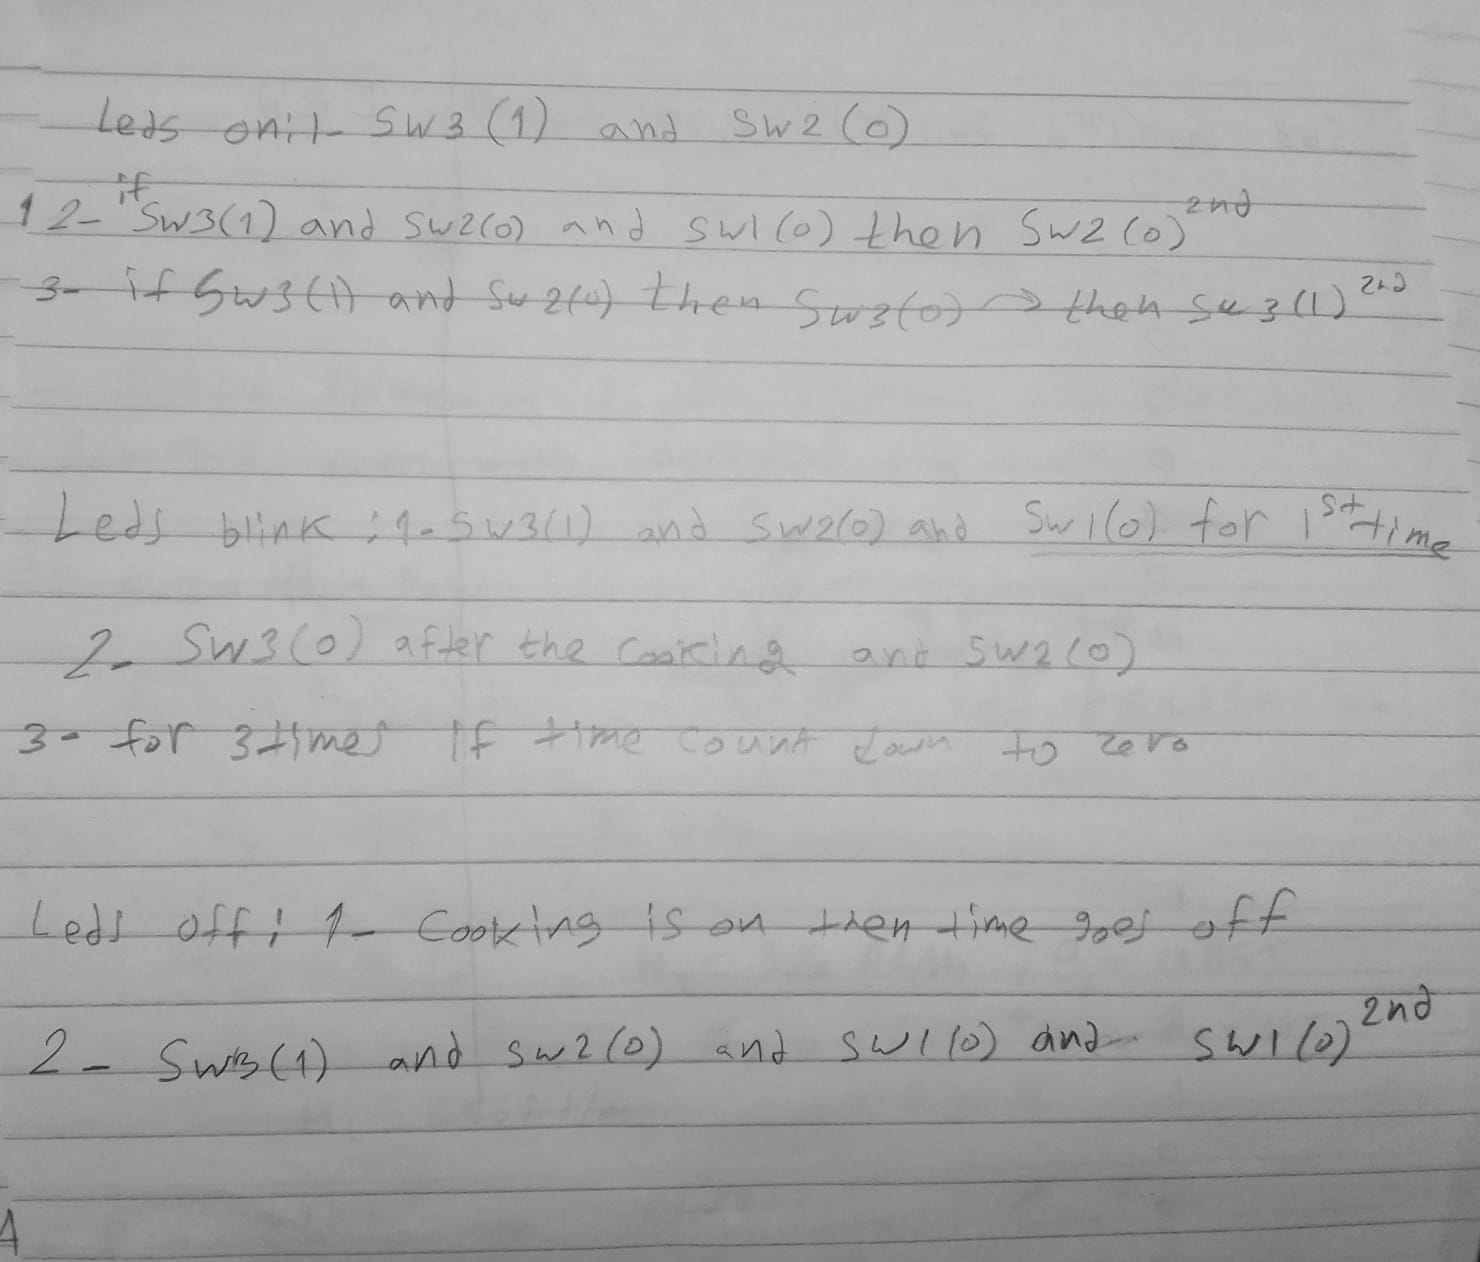 Leds on:1- SW3(1) and SW2(0)
1 2- if SW3(1) and SW2(0) and SW1(0) then SW2(0) 2nd
3- if SW3(1) and Sw2(0) then SW3(0) → then Sw3(1) 2nd
Leds blink :1- SW3(1) and SW2(0) and SW1(0) for 1st time
2- SW3(0) after the Cooking and SW2(0)
3- for 3times If time count down to zero
Leds off: 1- Cooking is on then time goes off
2- SW3(1) and sw2(0) and SW1(0) and SW1(0) 2nd
A